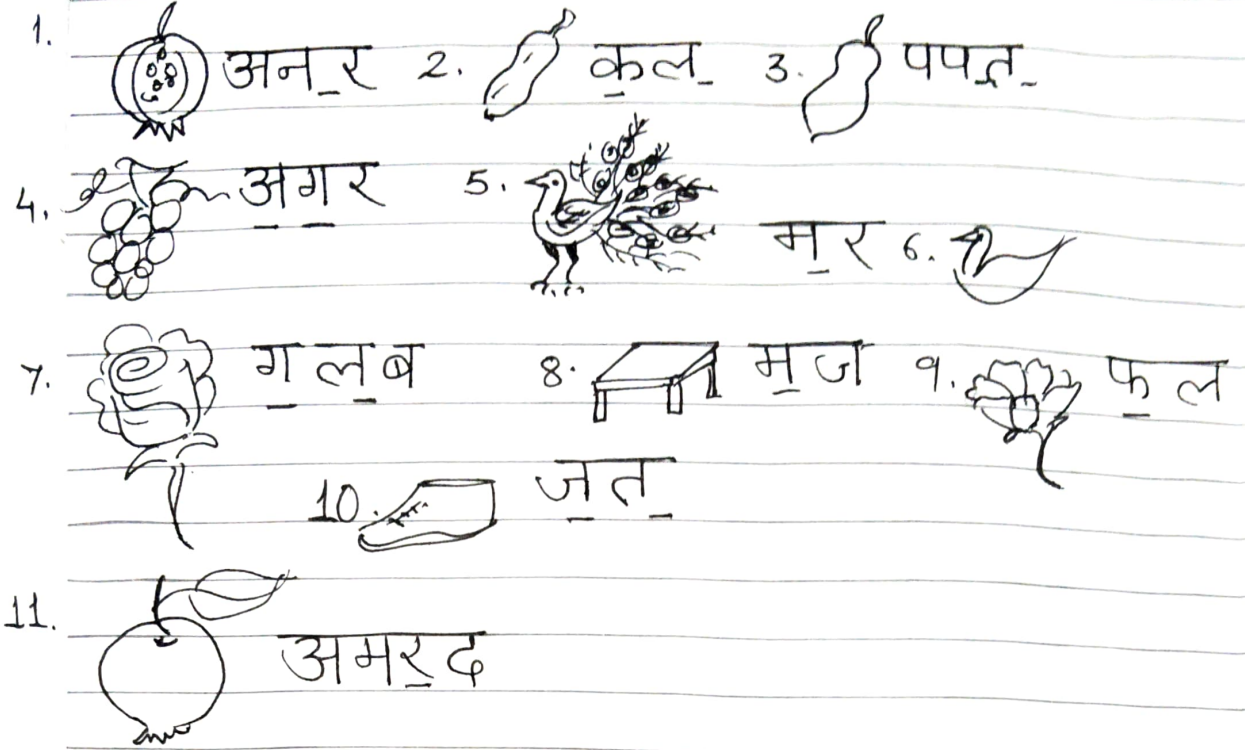 1. अन_र 2. क_ल_ 3. पपत_
4. अ_ग_र 5. म_र 6.
7. ग_ल_ब 8. म_ज 9. फ_ल
10. ज_त_
11. अमर_द